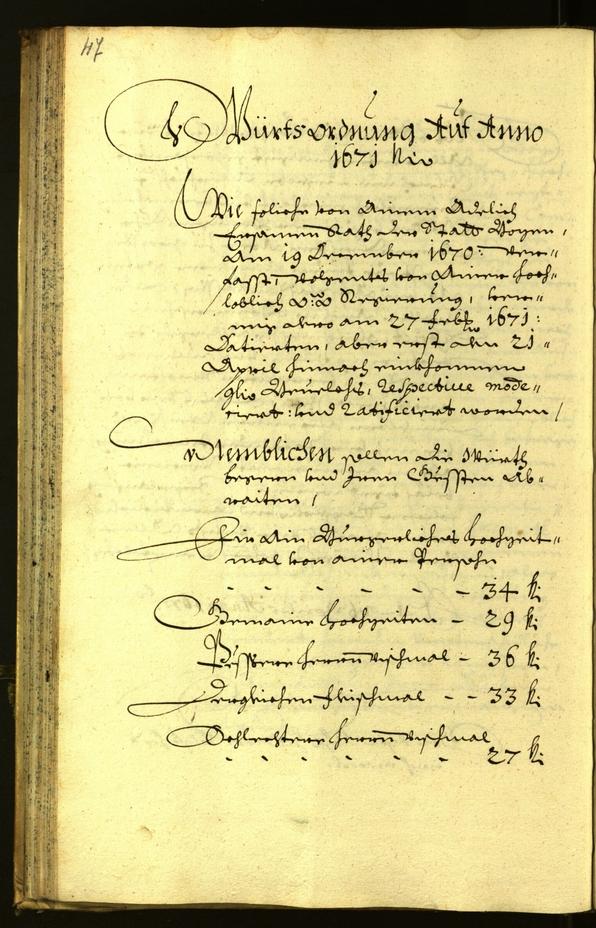 47
Würtsordnung Auf Anno
1671 Nio
Wie soliche von Ainem Adelich
Ersamen Rath der Statt Bozen,
Am 19 December 1670: ver=
fasst, volgentes von Ainer hoch=
loblich O:Ö: Regierung, ver=
mig dero am 27 Feb: 1671:
Datierten, aber erst den 21=
April hinnach einkhommen
Bevelchs, respective mode=
riert: und Ratificiert worden /
Nemblichen sollen die Würth
Zeern und Iren Gessten Ab=
raiten /
Für ain Burgerliches Hochzeit=
mal von ainer Persohn
- - - - - - 34 k:
Gemaine Hochzeiten - 29 k:
Pessere herrn vischmal - 36 k:
Dergleichen Fleischmal - - 33 k:
Schlechtere herrn vischmal
- - - - - - 27 k: